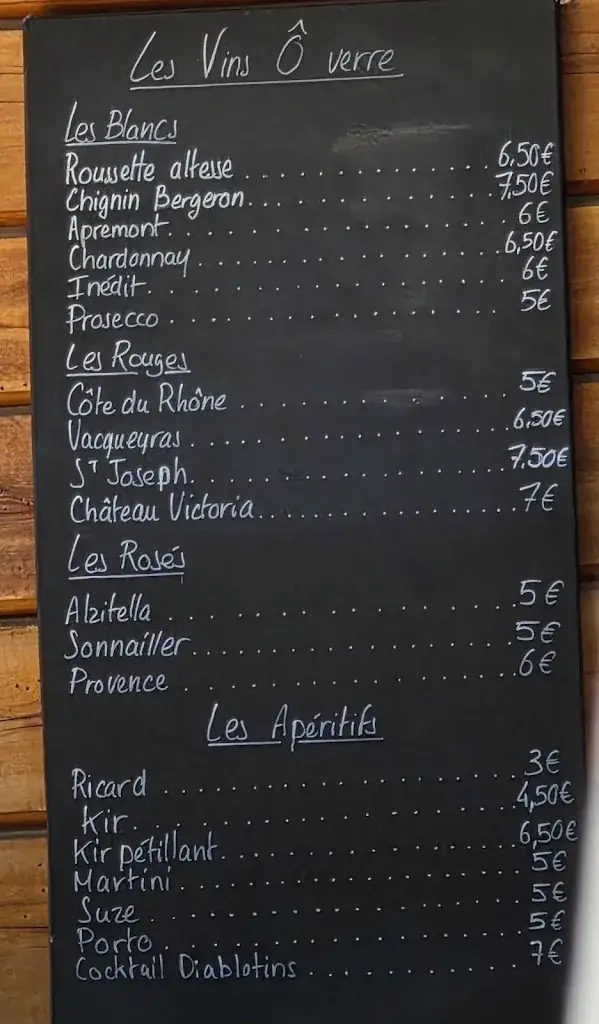 Les Vins Ô verre
Les Blancs
Roussette altesse . . . . . . . . . . . . . . 6,50€
Chignin Bergeron. . . . . . . . . . . . . . 7,50€
Apremont. . . . . . . . . . . . . . . . . . 6€
Chardonnay . . . . . . . . . . . . . . . . 6,50€
Inédit. . . . . . . . . . . . . . . . . . . 6€
Prosecco . . . . . . . . . . . . . . . . . 5€
Les Rouges
Côte du Rhône . . . . . . . . . . . . . . 5€
Vacqueyras . . . . . . . . . . . . . . . . 6,50€
Sᵀ Joseph. . . . . . . . . . . . . . . . . 7.50€
Château Victoria. . . . . . . . . . . . . . 7€
Les Rosés
Alzitella . . . . . . . . . . . . . . . . . 5€
Sonnailler. . . . . . . . . . . . . . . . . 5€
Provence . . . . . . . . . . . . . . . . . 6€
Les Apéritifs
Ricard . . . . . . . . . . . . . . . . . . 3€
Kir. . . . . . . . . . . . . . . . . . . . 4,50€
Kir pétillant. . . . . . . . . . . . . . . . 6,50€
Martini. . . . . . . . . . . . . . . . . . 5€
Suze . . . . . . . . . . . . . . . . . . . 5€
Porto. . . . . . . . . . . . . . . . . . . 5€
Cocktail Diablotins . . . . . . . . . . . . 7€